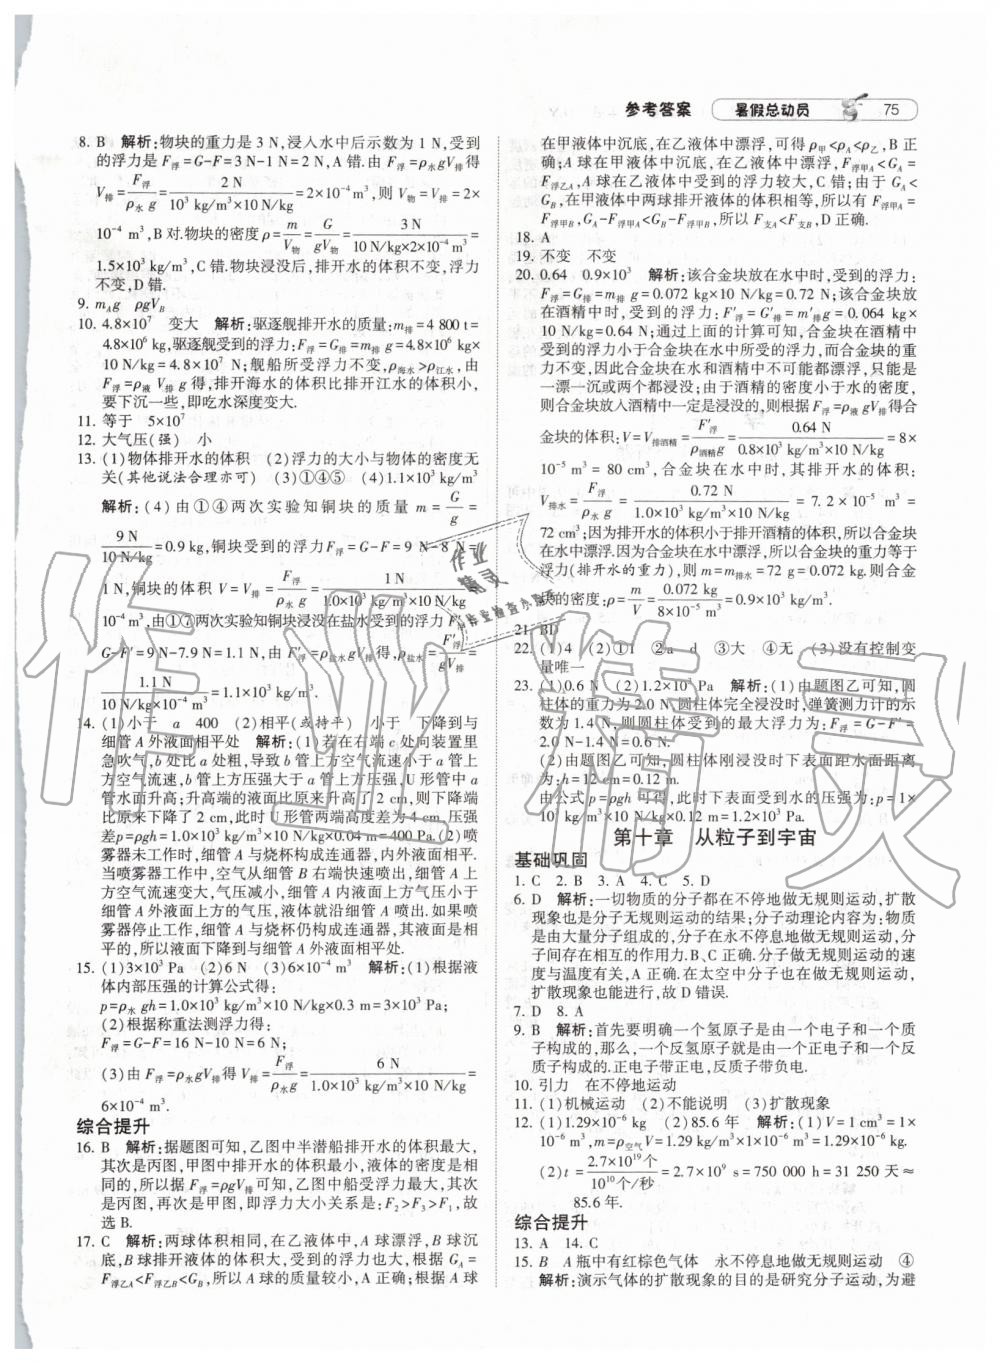 参考答案 暑假总动员 75
8. B 解析:物块的重力是 3 N,浸入水中后示数为 1 N,受到
的浮力是 F浮=G-F=3 N-1 N=2 N,A 错.由 F浮=ρ水gV排得
V排=F浮/ρ水 g=2 N/10³ kg/m³×10 N/kg=2×10⁻⁴m³,则 V物=V排=2×
10⁻⁴ m³,B 对.物块的密度ρ=m/V物=G/gV物=3 N/10 N/kg×2×10⁻⁴m³=
1.5×10³ kg/m³,C 错.物块浸没后,排开水的体积不变,浮力
不变,D 错.
9. mAg ρgVB
10. 4.8×10⁷ 变大 解析:驱逐舰排开水的质量:m排=4 800 t=
4.8×10⁶ kg,驱逐舰受到的浮力:F浮=G排=m排g=4.8×10⁶ kg×10
N/kg=4.8×10⁷ N;舰船所受浮力不变,ρ海水>ρ江水,由
F浮=ρ液 V排 g得,排开海水的体积比排开江水的体积小,
要下沉一些,即吃水深度变大.
11. 等于 5×10⁷
12. 大气压(强) 小
13. (1)物体排开水的体积 (2)浮力的大小与物体的密度无
关(其他说法合理亦可) (3)①④⑤ (4)1.1×10³ kg/m³
解析:(4)由①④两次实验知铜块的质量 m=G/g=
9 N/10 N/kg=0.9 kg,铜块受到的浮力F浮=G-F=9 N-8 N=
1 N,铜块的体积 V=V排=F浮/ρ水 g=1 N/1.0×10³ kg/m³×10 N/kg=
10⁻⁴ m³,由①⑦两次实验知铜块浸没在盐水受到的浮力 F′浮=
G-F′=9 N-7.9 N=1.1 N,由 F′浮=ρ盐水gV排得,ρ盐水=F′浮/gV排=
1.1 N/10 N/kg×10⁻⁴ m³=1.1×10³ kg/m³.
14. (1)小于 a 400 (2)相平(或持平) 小于 下降到与
细管 A外液面相平处 解析:(1)若在右端 c处向装置里
急吹气,b处比 a处粗,导致 b管上方空气流速小于 a管上
方空气流速,b管上方压强大于 a管上方压强,U形管中 a
管水面升高;升高端的液面比原来升高了 2 cm,则下降端
比原来下降了 2 cm,此时 U形管两端高度差为 4 cm,压强
差p=ρgh=1.0×10³ kg/m³×10 N/kg×0.04 m=400 Pa.(2)喷
雾器未工作时,细管 A与烧杯构成连通器,内外液面相平.
当喷雾器工作中,空气从细管 B右端快速喷出,细管 A上
方空气流速变大,气压减小,细管 A内液面上方气压小于
细管 A外液面上方的气压,液体就沿细管 A喷出.如果喷
雾器停止工作,细管 A与烧杯仍构成连通器,其液面是相
平的,所以液面下降到与细管 A外液面相平处.
15. (1)3×10³ Pa (2)6 N (3)6×10⁻⁴ m³ 解析:(1)根据液
体内部压强的计算公式得:
p=ρ水 gh=1.0×10³ kg/m³×10 N/kg×0.3 m=3×10³ Pa;
(2)根据称重法测浮力得:
F浮=G-F=16 N-10 N=6 N;
(3)由 F浮=ρ水gV排得V排=F浮/ρ水g=6 N/1.0×10³ kg/m³×10 N/kg=
6×10⁻⁴ m³.
综合提升
16. B 解析:据题图可知,乙图中半潜船排开水的体积最大,
其次是丙图,甲图中排开水的体积最小,液体的密度是相
同的,所以根据 F浮=ρgV排可知,乙图中船受浮力最大,其
次是丙图,再次是甲图,即浮力大小关系是:F2>F3>F1,故
选 B.
17. C 解析:两球体积相同,在乙液体中,A球漂浮,B球沉
底,B球排开液体的体积大,受到的浮力也大,根据 GA=
F浮乙A<F浮乙B<GB,所以 A球的质量较小,A正确;根据
在甲液体中沉底,在乙液体中漂浮,可得 ρ甲<ρA<ρ乙,B 正
确;A 球在甲液体中沉底,在乙液体中漂浮,F浮甲A<GA=
F浮乙A,A球在乙液体中受到的浮力较大,C 错;由于 GA<
GB,在甲液体中两球排开液体的体积相等,所以有 F浮甲A=
F浮甲B,GA-F浮甲A<GB-F浮甲B,所以 F支A<F支B,D 正确.
18. A
19. 不变 不变
20. 0.64 0.9×10³ 解析:该合金块放在水中时,受到的浮力:
F浮=G排=m排 g=0.072 kg×10 N/kg=0.72 N;该合金块放
在酒精中时,受到的浮力:F′浮=G′排=m′排g=0.064 kg×
10 N/kg=0.64 N;通过上面的计算可知,合金块在酒精中
受到的浮力小于合金块在水中所受的浮力,而合金块的重
力不变,因此合金块在水和酒精中不可能都漂浮,只能是
一漂一沉或两个都浸没;由于酒精的密度小于水的密度,
则合金块放入酒精中一定是浸没的,则根据 F浮=ρ液 gV排得合
金块的体积:V=V排酒精=F′浮/ρ酒精g=0.64 N/0.8×10³ kg/m³×10 N/kg=8×
10⁻⁵ m³=80 cm³,合金块在水中时,其排开水的体积:
V排水=F浮/ρ水 g=0.72 N/1.0×10³ kg/m³×10 N/kg=7.2×10⁻⁵ m³=
72 cm³;因为排开水的体积小于排开酒精的体积,所以合金块
在水中漂浮.因为合金块在水中漂浮,所以合金块的重力等于
浮力(排开水的重力),则 m=m排水=72 g=0.072 kg.则合金
块的密度:ρ=m/V=0.072 kg/8×10⁻⁵ m³=0.9×10³ kg/m³.
21. BD
22. (1)4 (2)①1 ②a d ③大 ④无 (3)没有控制变
量唯一
23. (1)0.6 N (2)1.2×10³ Pa 解析:(1)由题图乙可知,圆
柱体的重力为 2.0 N,圆柱体完全浸没时,弹簧测力计的示
数为 1.4 N,则圆柱体受到的最大浮力为:F浮=G-F′=
2.0 N-1.4 N=0.6 N.
(2)由题图乙可知;圆柱体刚浸没时下表面距水面距离
为:h=12 cm=0.12 m.
由公式 p=ρgh 可得,此时下表面受到水的压强为:p=1×
10³ kg/m³×10 N/kg×0.12 m=1.2×10³ Pa.
第十章 从粒子到宇宙
基础巩固
1. C 2. B 3. A 4. C 5. D
6. D 解析:一切物质的分子都在不停地做无规则运动,扩散
现象也是分子无规则运动的结果;分子动理论内容为:物质
是由大量分子组成的,分子在永不停息地做无规则运动,分
子间存在相互的作用力.B、C 正确.分子做无规则运动的速
度与温度有关,A 正确.在太空中分子也在做无规则运动,
扩散现象也能进行,故 D 错误.
7. D 8. A
9. B 解析:首先要明确一个氢原子是由一个电子和一个质
子构成的,那么,一个反氢原子就是由一个正电子和一个反
质子构成的.正电子带正电,反质子带负电.
10. 引力 在不停地运动
11. (1)机械运动 (2)不能说明 (3)扩散现象
12. (1)1.29×10⁻⁶ kg (2)85.6 年 解析:(1)V=1 cm³=1×
10⁻⁶ m³,m=ρ空气V=1.29 kg/m³×1×10⁻⁶ m³=1.29×10⁻⁶ kg.
(2)t=2.7×10¹⁹个/10¹⁰个/秒=2.7×10⁹ s=750 000 h=31 250 天≈
85.6 年.
综合提升
13. A 14. C
15. B A 瓶中有红棕色气体 永不停息地做无规则运动 ④
解析:演示气体的扩散现象的目的是研究分子运动,为避
作业精灵